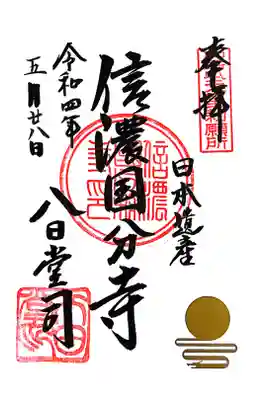 奉拝
日本遺産
信濃国分寺
八日堂司
令和四年
五月廿八日